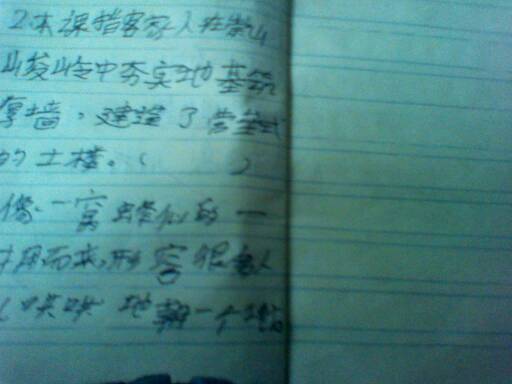 2.本课指客家人在崇山
山发岭中夯实地基筑
厚墙，建造了营垒式
的土楼。（　　）
像一窝蜂似的一
拥而来，形容很多人
哄哄地朝一个地